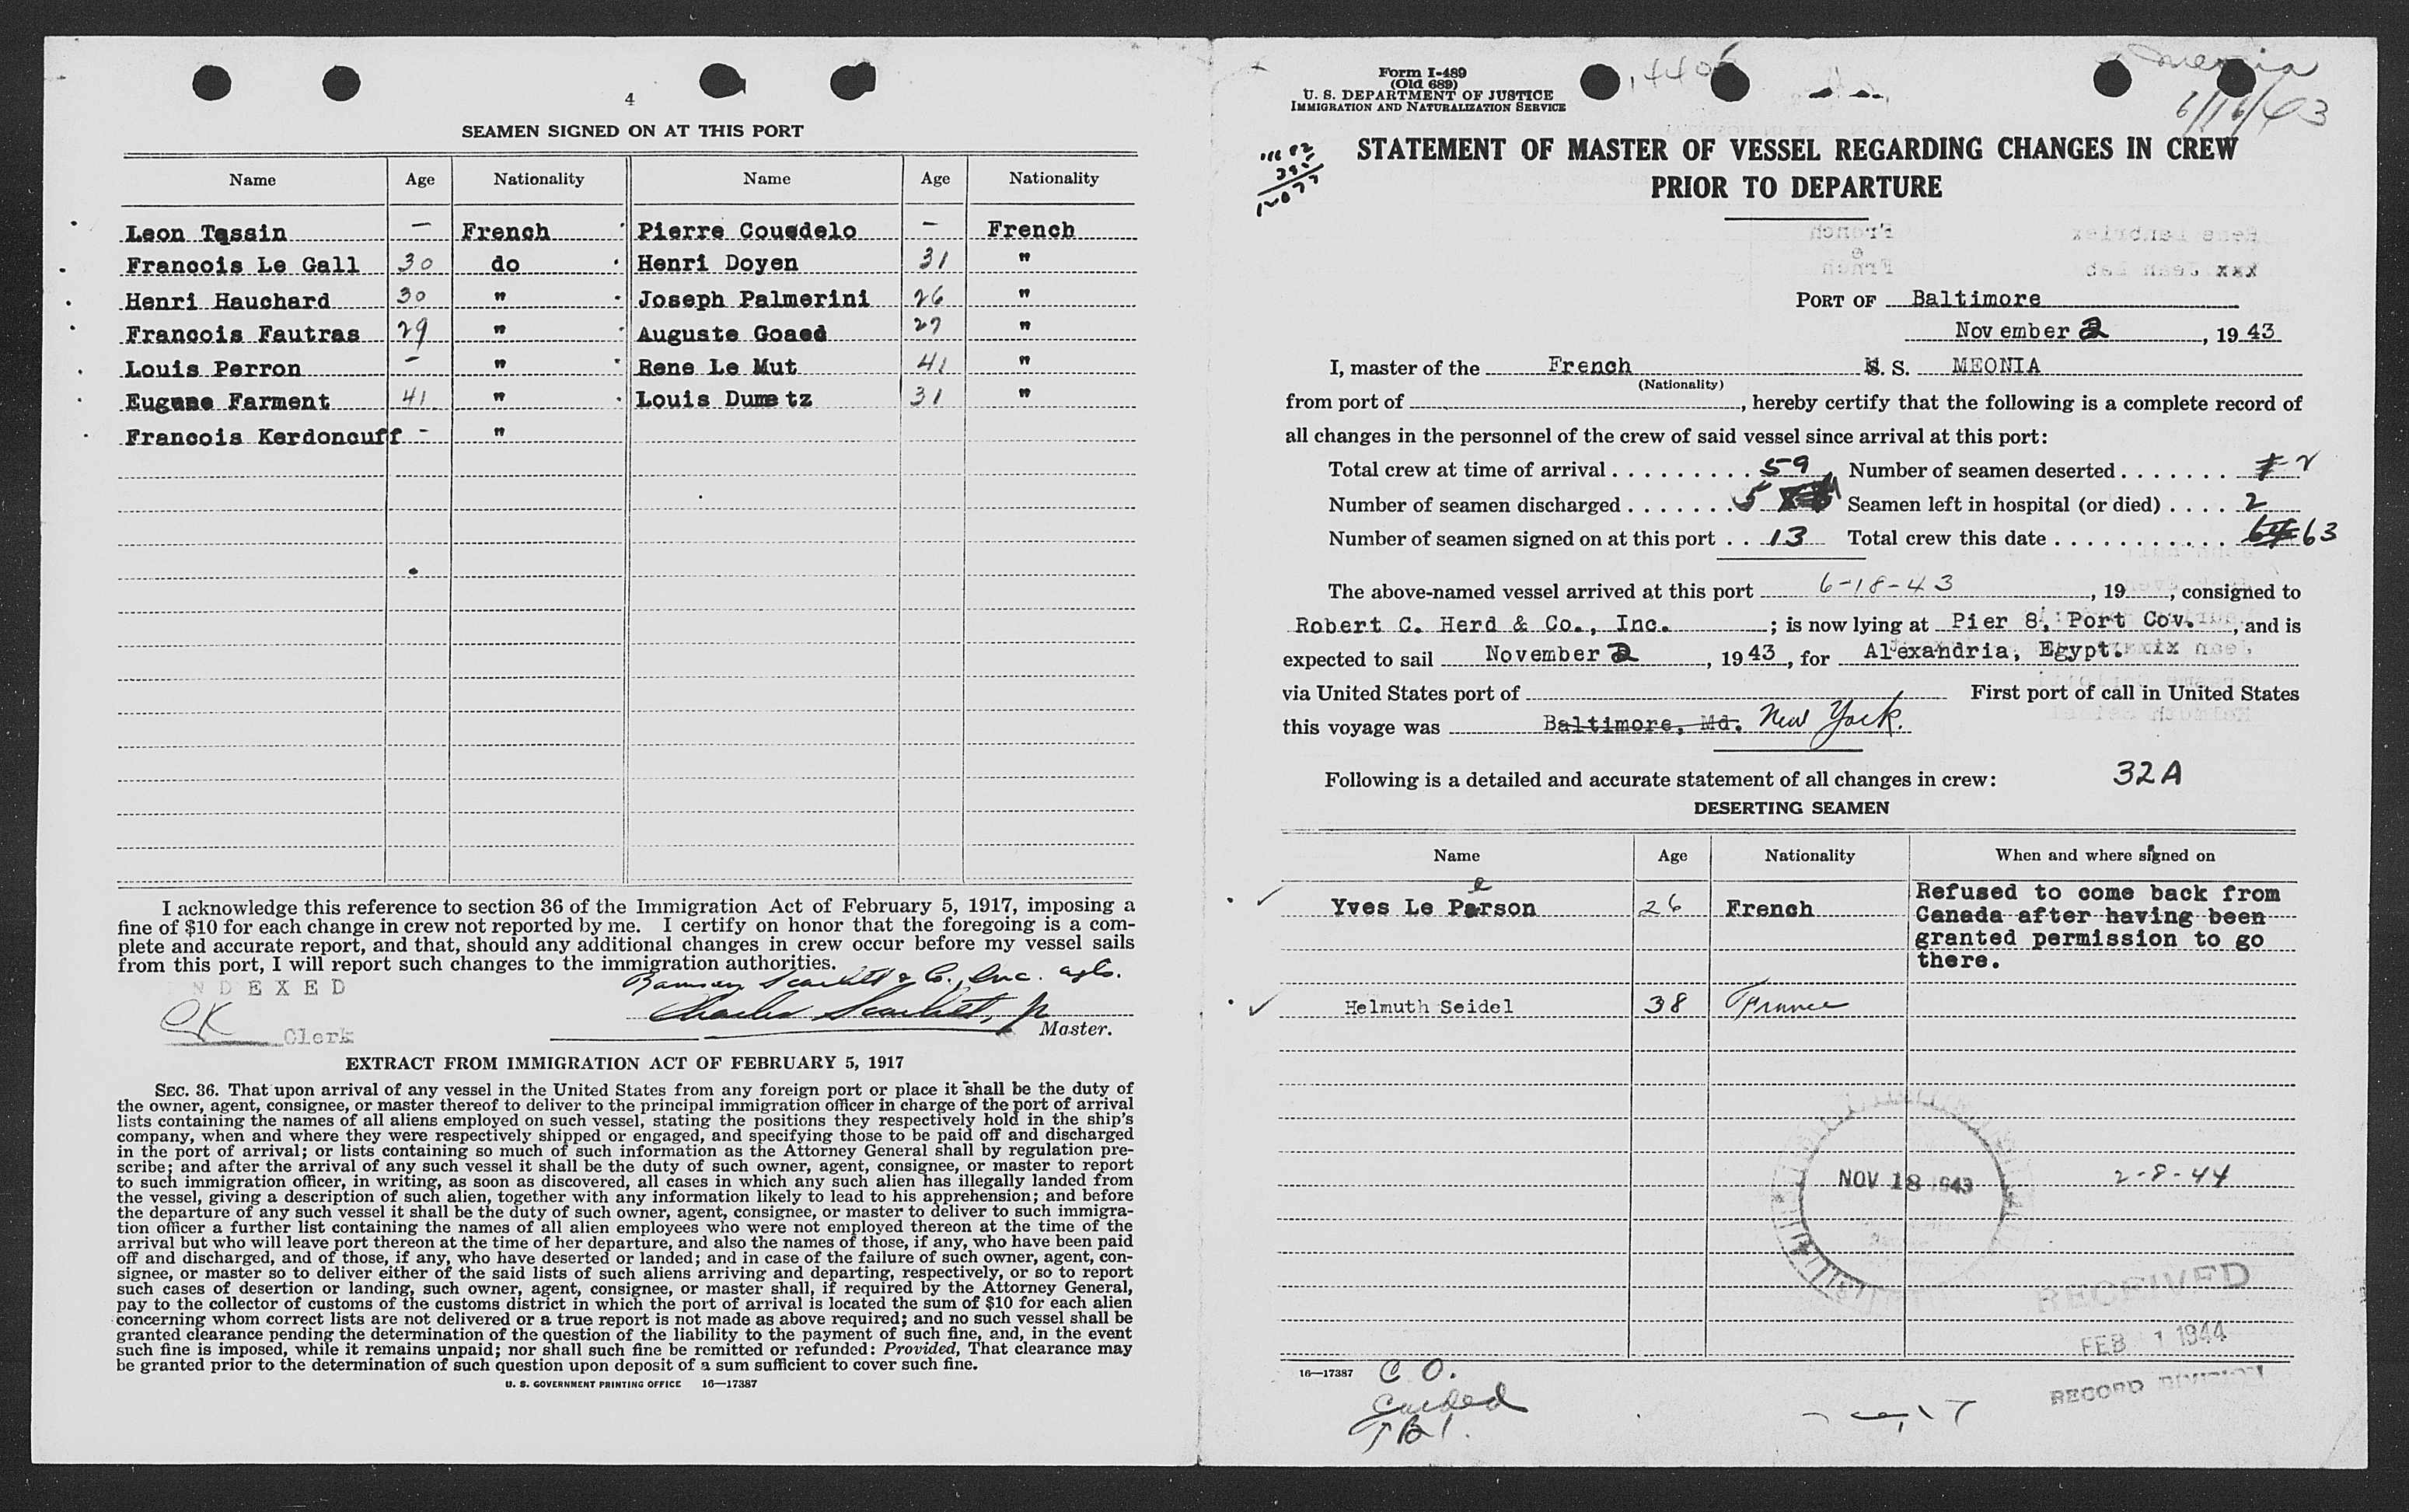 4
SEAMEN SIGNED ON AT THIS PORT
Name Age Nationality Name Age Nationality
Leon Tassin — French Pierre Couedelo — French
Francois Le Gall 30 do Henri Doyen 31 "
Henri Hauchard 30 " Joseph Palmerini 26 "
Francois Fautras 29 " Auguste Goaed 27 "
Louis Perron - " Rene Le Mut 41 "
Eugene Farment 41 " Louis Dumetz 31 "
Francois Kerdoncuff - "
I acknowledge this reference to section 36 of the Immigration Act of February 5, 1917, imposing a
fine of $10 for each change in crew not reported by me. I certify on honor that the foregoing is a com-
plete and accurate report, and that, should any additional changes in crew occur before my vessel sails
from this port, I will report such changes to the immigration authorities.
Ramsay Scarlett & Co., Inc. agts.
NDEXED
Charles Scarlett, Jr
Master.
OK Clerk
EXTRACT FROM IMMIGRATION ACT OF FEBRUARY 5, 1917
SEC. 36. That upon arrival of any vessel in the United States from any foreign port or place it shall be the duty of
the owner, agent, consignee, or master thereof to deliver to the principal immigration officer in charge of the port of arrival
lists containing the names of all aliens employed on such vessel, stating the positions they respectively hold in the ship's
company, when and where they were respectively shipped or engaged, and specifying those to be paid off and discharged
in the port of arrival; or lists containing so much of such information as the Attorney General shall by regulation pre-
scribe; and after the arrival of any such vessel it shall be the duty of such owner, agent, consignee, or master to report
to such immigration officer, in writing, as soon as discovered, all cases in which any such alien has illegally landed from
the vessel, giving a description of such alien, together with any information likely to lead to his apprehension; and before
the departure of any such vessel it shall be the duty of such owner, agent, consignee, or master to deliver to such immigra-
tion officer a further list containing the names of all alien employees who were not employed thereon at the time of the
arrival but who will leave port thereon at the time of her departure, and also the names of those, if any, who have been paid
off and discharged, and of those, if any, who have deserted or landed; and in case of the failure of such owner, agent, con-
signee, or master so to deliver either of the said lists of such aliens arriving and departing, respectively, or so to report
such cases of desertion or landing, such owner, agent, consignee, or master shall, if required by the Attorney General,
pay to the collector of customs of the customs district in which the port of arrival is located the sum of $10 for each alien
concerning whom correct lists are not delivered or a true report is not made as above required; and no such vessel shall be
granted clearance pending the determination of the question of the liability to the payment of such fine, and, in the event
such fine is imposed, while it remains unpaid; nor shall such fine be remitted or refunded: Provided, That clearance may
be granted prior to the determination of such question upon deposit of a sum sufficient to cover such fine.
U. S. GOVERNMENT PRINTING OFFICE 16—17387
Form I-489
(Old 689)
U. S. DEPARTMENT OF JUSTICE
IMMIGRATION AND NATURALIZATION SERVICE
Meonia
6/16/43
STATEMENT OF MASTER OF VESSEL REGARDING CHANGES IN CREW
PRIOR TO DEPARTURE
PORT OF Baltimore
November 2, 1943
I, master of the French S. S. MEONIA
(Nationality)
from port of , hereby certify that the following is a complete record of
all changes in the personnel of the crew of said vessel since arrival at this port:
Total crew at time of arrival 59 Number of seamen deserted 1 2
Number of seamen discharged 5 Seamen left in hospital (or died) 2
Number of seamen signed on at this port 13 Total crew this date 64 63
The above-named vessel arrived at this port 6-18-43, 19 , consigned to
Robert C. Herd & Co., Inc. ; is now lying at Pier 8, Port Cov. , and is
expected to sail November 2, 1943, for Alexandria, Egypt.
via United States port of First port of call in United States
this voyage was Baltimore, Md. New York.
Following is a detailed and accurate statement of all changes in crew: 32A
DESERTING SEAMEN
Name Age Nationality When and where signed on
e
Yves Le Parson 26 French Refused to come back from
Canada after having been
granted permission to go
there.
Helmuth Seidel 38 France
NOV 18 1943
2-8-44
RECEIVED
FEB 1 1944
RECORD DIVISION
16—17387
C O.
Carded